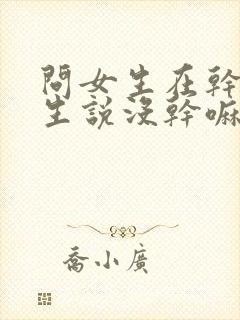 問女生在幹
生說沒幹嘛
喬小廣